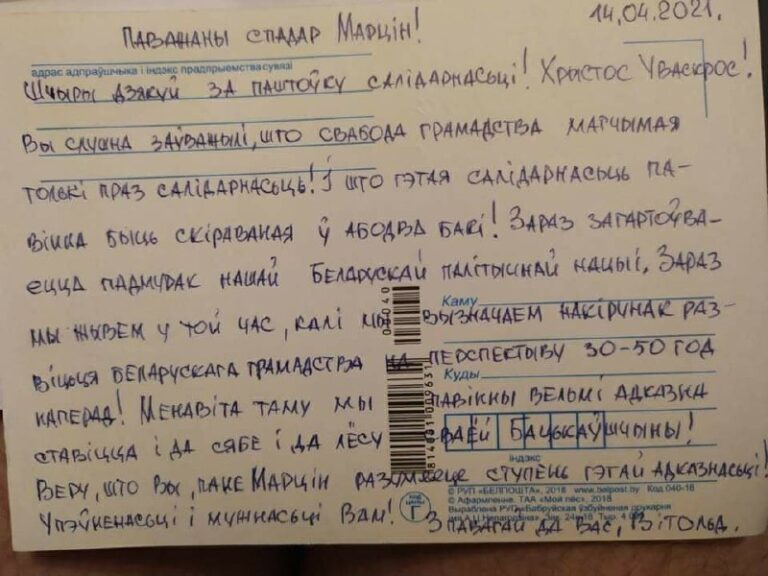 14.04.2021.
Паважаны спадар Марцін!
адрас адпраўшчыка і індэкс прадпрыемства сувязі
Шчыры дзякуй за паштоўку салідарнасьці! Хрыстос Уваскрос!
Вы слушна заўважылі, што свабода грамадства магчымая
толькі праз салідарнасьць! І што гэтая салідарнасьць па-
вінна быць скіраваная ў абодва бакі! Зараз загартоўва-
ецца падмурак нашай Беларускай палітышнай нацыі. Зараз
04040
Каму
мы жывем у той час, калі мы вызначаем накірунак раз-
віцьця беларускага грамадства на перспектыву 30-50 год
Куды
наперад! Менавіта таму мы павінны вельмі адказна
ставіцца і да сябе і да лёсу сваёй Бацькаўшчыны!
індэкс
Веру, што Вы, пане Марцін разумееце ступень гэтай адказнасьці!
© РУП «БЕЛПОШТА», 2018 www.belpost.by Код 040-18
© Афармленне. ТАА «Мой лёс», 2018
Выраблена РУП «Бабруйская ўзбуйненая друкарня
Упэўненасьці і мужнасьці Вам! З павагай да Вас, Вітольд.